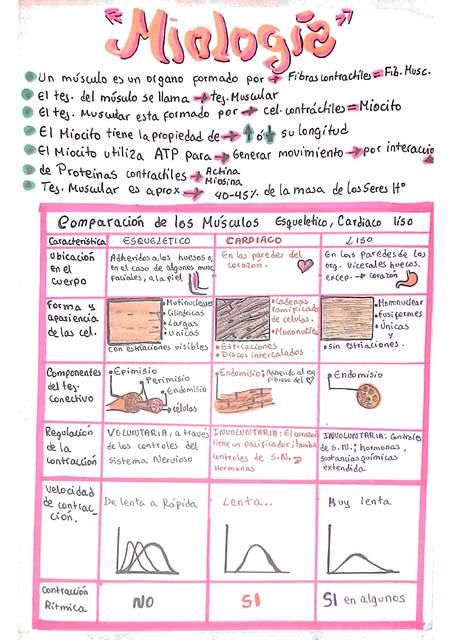 "Miología"
Un músculo es un organo formado por → Fibras contractiles = Fib. Musc.
El tej. del músulo se llama → tej. Muscular
El tej. Muscular esta formado por → cel. contráctiles = Miocito
El Miocito tiene la propiedad de → ↑ ó ↓ su longitud
El Miocito utiliza ATP para → Generar movimiento → por interacción
de Proteinas contractiles → Actina
Miosina
Tej. Muscular es aprox → 40-45% de la masa de los Seres H°
Comparación de los Músculos Esqueletico, Cardiaco liso
Característica ESQUELETICO CARDIACO LISO
Ubicación en el cuerpo
Adheridos a los huesos o, en el caso de algunos musc faciales, a la piel
En las paredes del corazón.
En las Paredes de los org. Vicerales huecos. excep. → corazón
Forma y apariencia de las cel.
• Multinuclear
• Cilindricas
• Largas
• Unicas
con estriaciones visibles
• Cadenas ramificadas de celulas.
• Mononuclear
• Estriaciones
• Discos intercalados
• Mononuclear
• fusiformes
• Unicas
y
• sin estriaciones.
Componentes del tej. conectivo
• Epimisio
• Perimisio
• Endomisio
• células
Endomisio: Adherido al esq. fibroso del
• Endomisio
Regulación de la contracción
VOLUNTARIA, a través de los controles del sistema Nervioso
INVOLUNTARIA: El corazón tiene un pacificador; también controles de S.N. y Hormonas
INVOLUNTARIA: controles de S.N.; hormonas, sustancias químicas extendida
Velocidad de contracción.
De lenta a Rápida
Lenta..
Muy lenta
Contracción Ritmica
NO
SI
SI en algunos